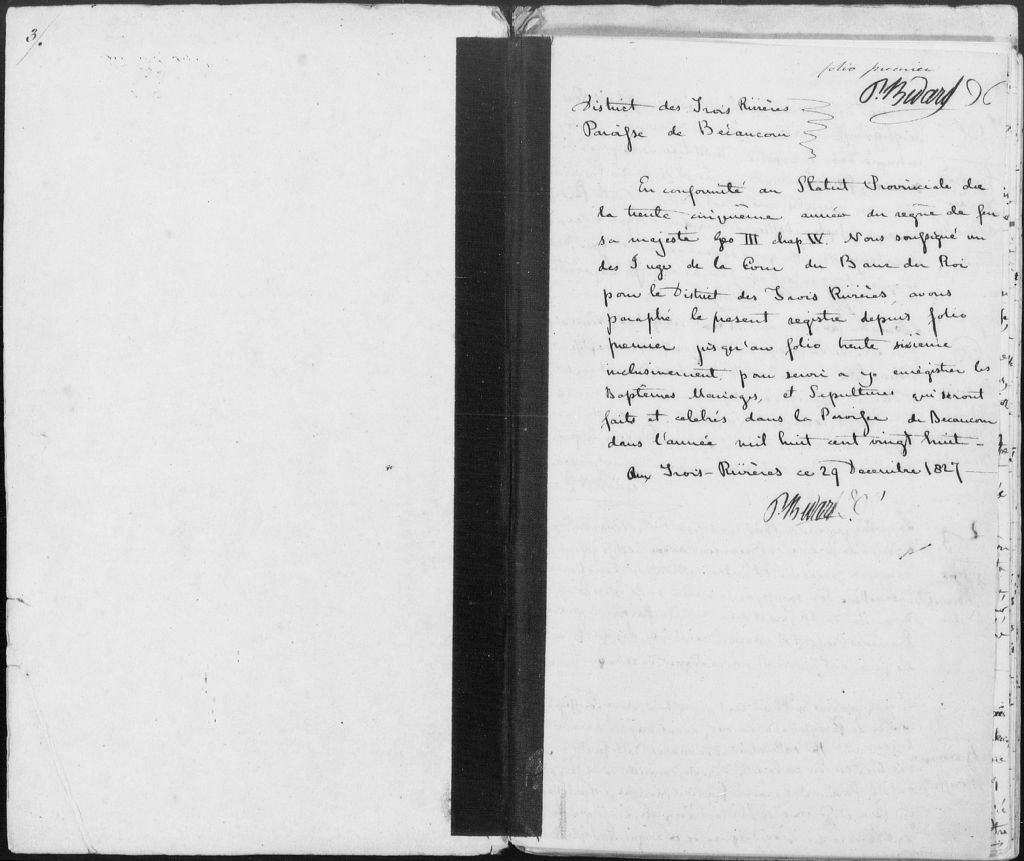 3.
folio premier
P. Bedard
District des Trois Rivières
Paroisse de Bécancour
En conformité au Statut Provinciale de
la trente cinquième année du règne de feu
sa majesté Geo III chap IV. Nous soussigné un
des Juges de la Cour du Banc du Roi
pour le District des Trois Rivières, avons
paraphé le present registre depuis folio
premier jusqu'au folio trente sixième
inclusivement, pour servir a y enrégistrer les
Baptêmes Mariages, et Sepultures qui seront
faits et celebrés dans la Paroisse de Becancour
dans l'année mil huit cent vingt huit —
Aux Trois-Rivières ce 29 Decembre 1827 —
P. Bedard